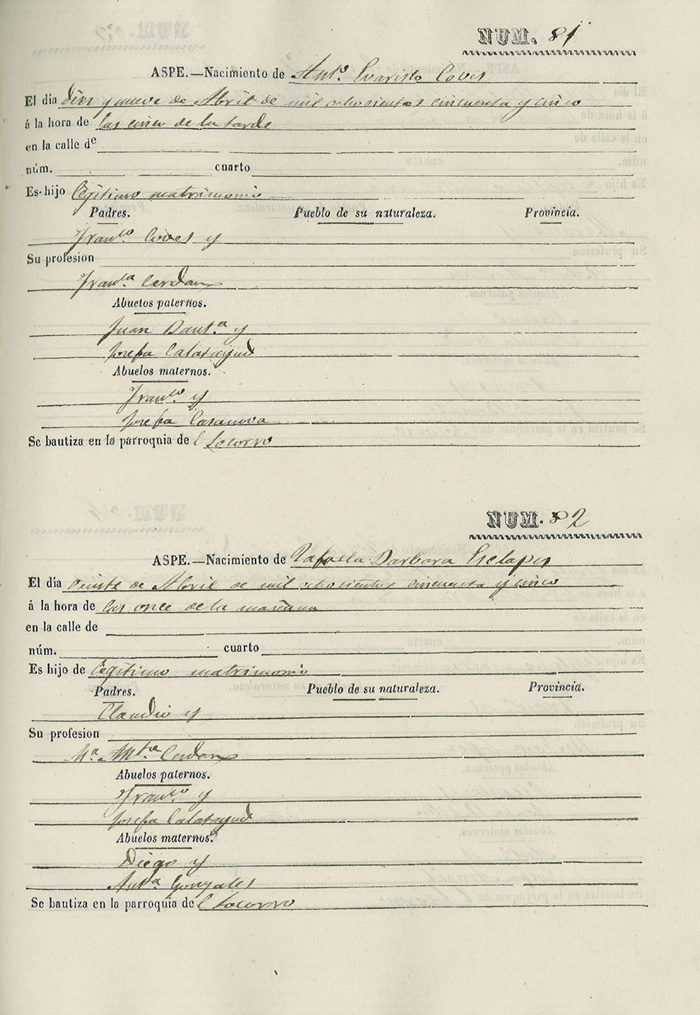 NUM. 81
ASPE.—Nacimiento de Antº. Evaristo Coves
El día diez y nueve de Abril de mil ochocientos cincuenta y cinco
á la hora de las cinco de la tarde
en la calle de
núm. cuarto
Es hijo legitimo matrimonio
Padres. Pueblo de su naturaleza. Provincia.
Franco. Coves y
Su profesion
Franca. Cerdan
Abuelos paternos.
Juan Bauta. y
Josefa Calatayud
Abuelos maternos.
Franco. y
Josefa Casanova
Se bautiza en la parroquia de l Socorro
NUM. 82
ASPE.—Nacimiento de Rafaela Barbora Esclapes
El día veinte de Abril de mil ochocientos cincuenta y cinco
á la hora de las once de la mañana
en la calle de
núm. cuarto
Es hijo de legitimo matrimonio
Padres. Pueblo de su naturaleza. Provincia.
Claudio y
Su profesion
Mª. Cerdan
Abuelos paternos.
Franco. y
Josefa Calatayud
Abuelos maternos.
Diego y
Anta. Gonzales
Se bautiza en la parroquia de l Socorro